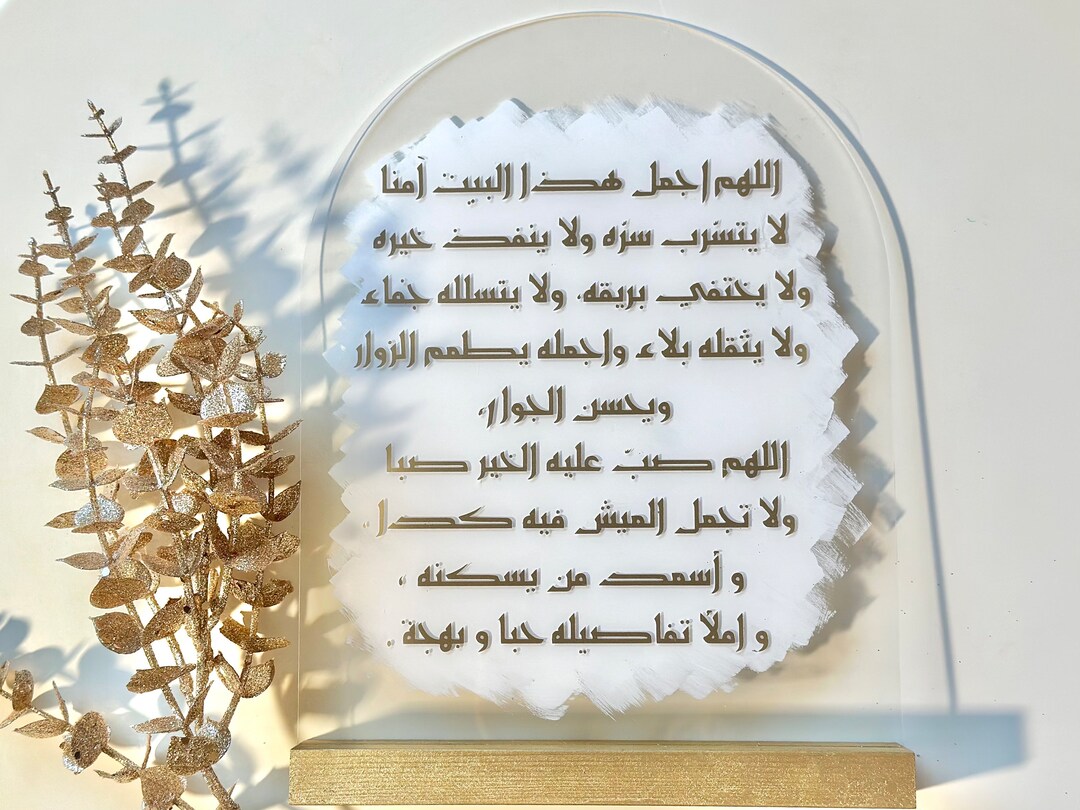 اللهم اجعل هذا البيت آمنا
لا يتسرب سره ولا ينفذ خيره
ولا يختفي بريقه، ولا يتسلله جفاء
ولا يثقله بلاء واجعله يطعم الزوار
ويحسن الجوار،
اللهم صبّ عليه الخير صبا
ولا تجعل العيش فيه كدا،
و أسعد من يسكنه ،
و املأ تفاصيله حبا و بهجة .